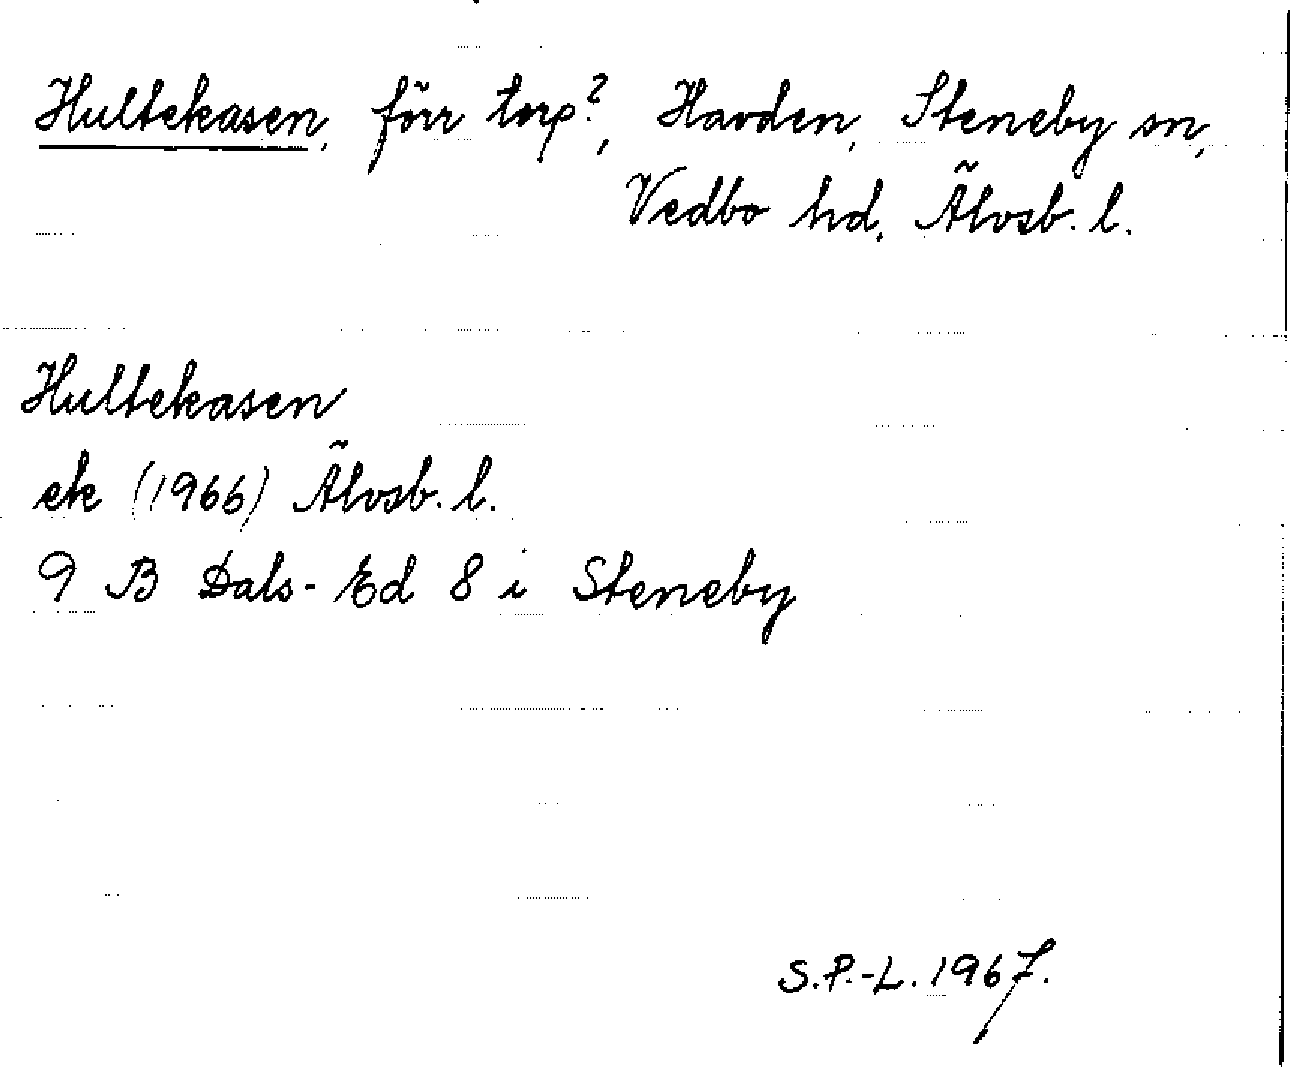 Hultekasen, förr torp?, Havden, Steneby sn,
Vedbo hd, Älvsb. l.
Hultekasen
ek (1966) Älvsb. l.
9 B Dals-Ed 8 i Steneby
S.P.-L. 1967.